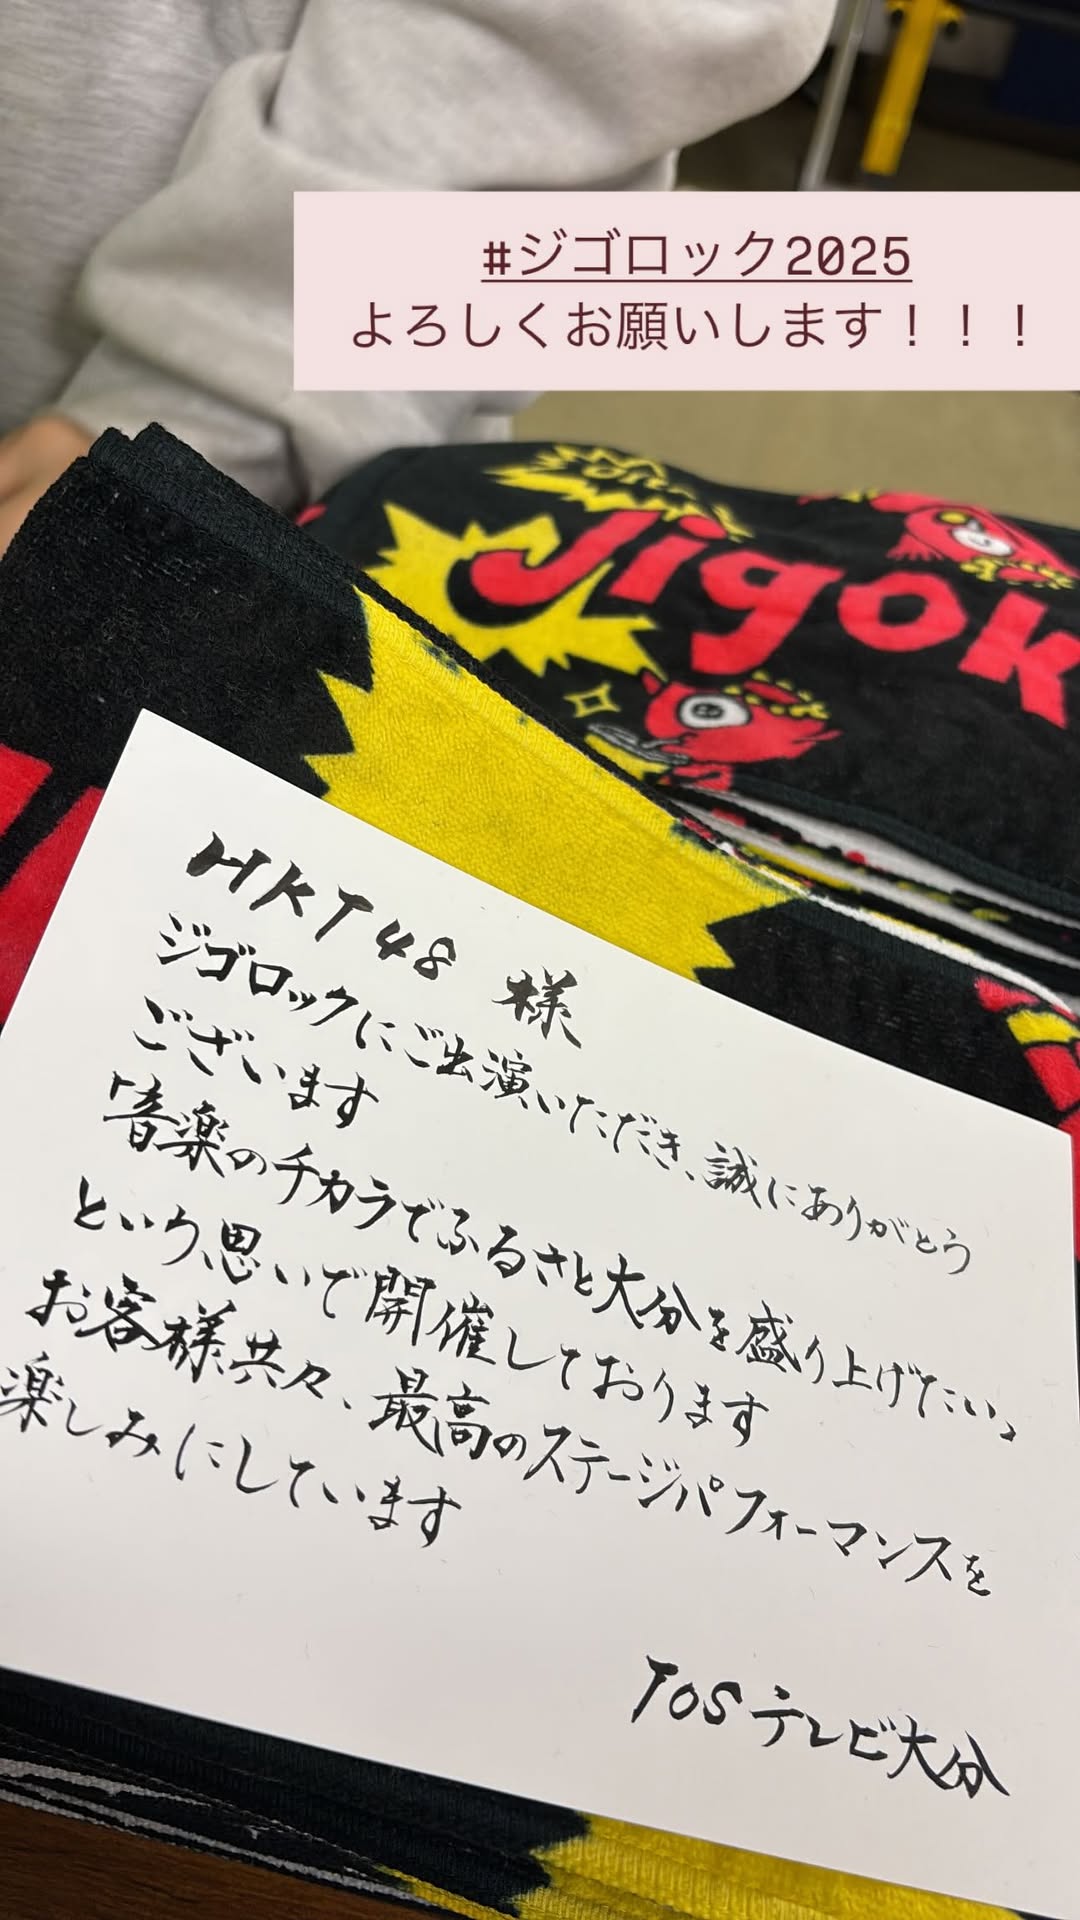 #ジゴロック2025
よろしくお願いします！！！
Jigok
HKT48 様
ジゴロックにご出演いただき、誠にありがとう
ございます
「音楽のチカラでふるさと大分を盛り上げたい」
という思いで開催しております
お客様共々、最高のステージパフォーマンスを
楽しみにしています
TOSテレビ大分